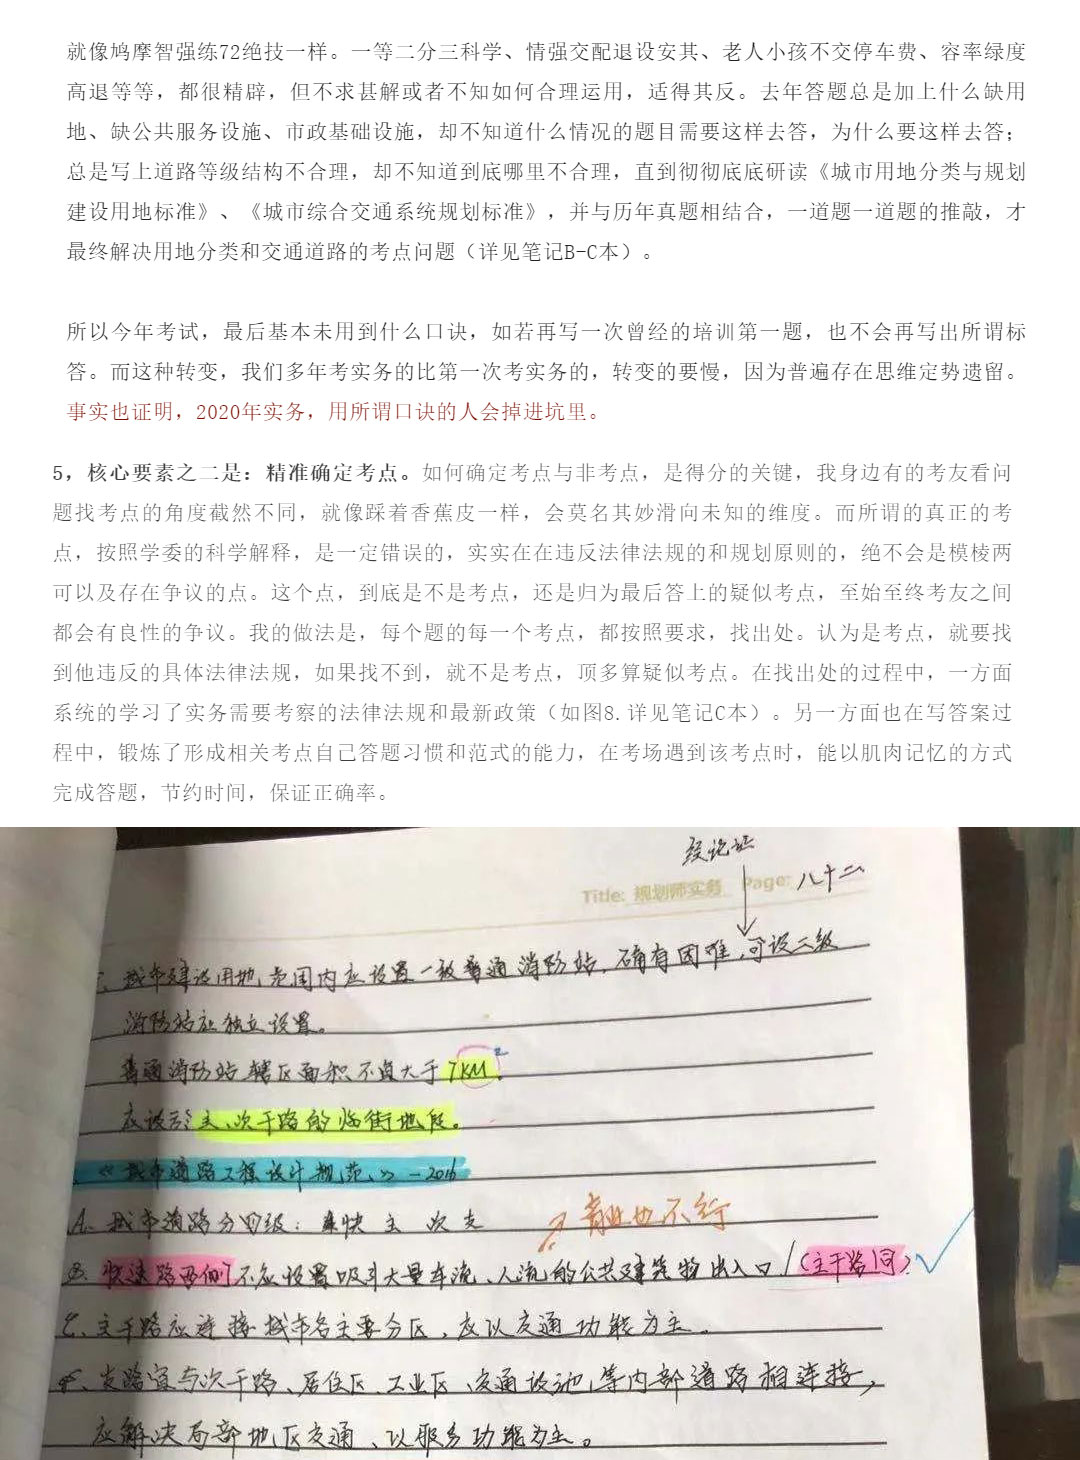 就像鸠摩智强练72绝技一样。一等二分三科学、情强交配退设安其、老人小孩不交停车费、容率绿度
高退等等，都很精辟，但不求甚解或者不知如何合理运用，适得其反。去年答题总是加上什么缺用
地、缺公共服务设施、市政基础设施，却不知道什么情况的题目需要这样去答，为什么要这样去答；
总是写上道路等级结构不合理，却不知道到底哪里不合理，直到彻彻底底研读《城市用地分类与规划
建设用地标准》、《城市综合交通系统规划标准》，并与历年真题相结合，一道题一道题的推敲，才
最终解决用地分类和交通道路的考点问题（详见笔记B-C本）。
所以今年考试，最后基本未用到什么口诀，如若再写一次曾经的培训第一题，也不会再写出所谓标
答。而这种转变，我们多年考实务的比第一次考实务的，转变的要慢，因为普遍存在思维定势遗留。
事实也证明，2020年实务，用所谓口诀的人会掉进坑里。
5，核心要素之二是：精准确定考点。如何确定考点与非考点，是得分的关键，我身边有的考友看问
题找考点的角度截然不同，就像踩着香蕉皮一样，会莫名其妙滑向未知的维度。而所谓的真正的考
点，按照学委的科学解释，是一定错误的，实实在在违反法律法规的和规划原则的，绝不会是模棱两
可以及存在争议的点。这个点，到底是不是考点，还是归为最后答上的疑似考点，至始至终考友之间
都会有良性的争议。我的做法是，每个题的每一个考点，都按照要求，找出处。认为是考点，就要找
到他违反的具体法律法规，如果找不到，就不是考点，顶多算疑似考点。在找出处的过程中，一方面
系统的学习了实务需要考察的法律法规和最新政策（如图8.详见笔记C本）。另一方面也在写答案过
程中，锻炼了形成相关考点自己答题习惯和范式的能力，在考场遇到该考点时，能以肌肉记忆的方式
完成答题，节约时间，保证正确率。
经论证
Title: 规划师实务 Page: 八十二
城市建设用地范围内应设置一级普通消防站，确有困难，可设二级
消防站应独立设置。
普通消防站辖区面积不宜大于7KM²。
应设于主、次干路的临街地段。
《城市道路工程设计规范》-2016
A. 城市道路分四级：快 主 次 支
商业也不行
B. 快速路两侧不应设置吸引大量车流、人流的公共建筑物出入口/（主干路同）
C. 主干路应连接城市各主要分区，应以交通功能为主。
支路宜与次干路、居住区、工业区、交通设施等内部道路相连接，
应解决局部地区交通、以服务功能为主。